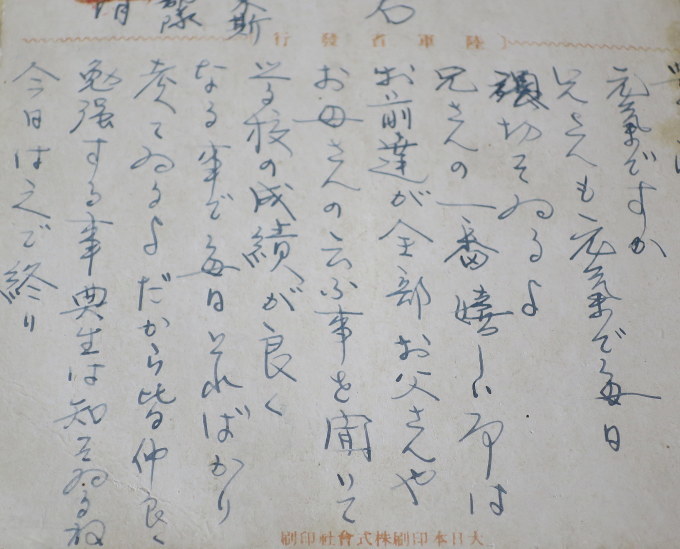 元気ですか
兄さんも元気で毎日
張切つてゐるよ
兄さんの一番嬉しい事は
お前達が全部お父さんや
お母さんの云ふ事を聞いて
学校の成績が良く
なる事で毎日そればかり
考へてゐるよだから皆仲良く
勉強する事典生は知つてゐるね
今日は之で終り
(陸軍省發行)
大日本印刷株式會社印刷